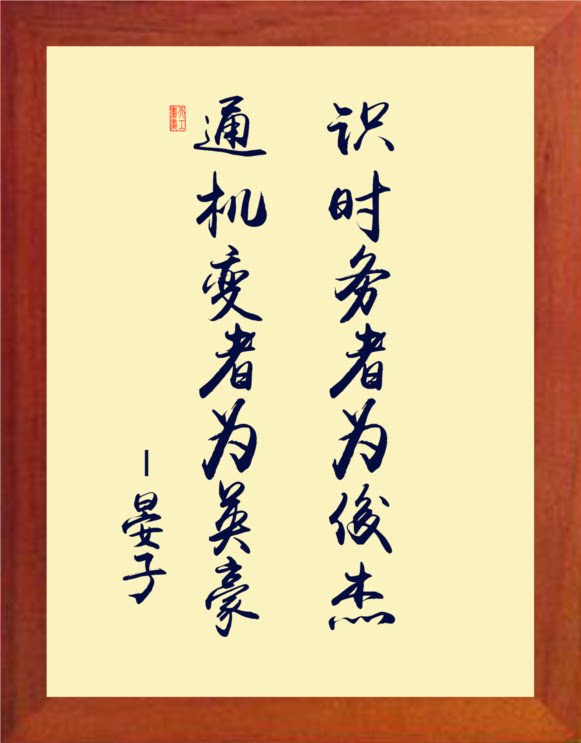 识时务者为俊杰
通机变者为英豪
－晏子